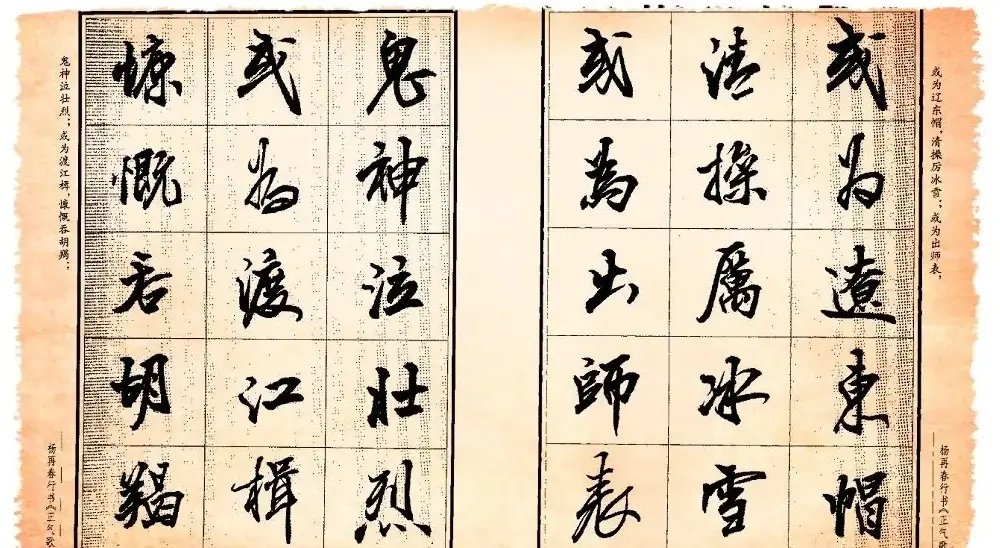 或为辽东帽，清操厉冰雪；或为出师表，
或為遼東帽
清操厲冰雪
或為出師表
杨再春行书《正气歌
鬼神泣壮烈；或为渡江楫，慷慨吞胡羯；
鬼神泣壯烈
或為渡江楫
慷慨吞胡羯
杨再春行书《正气歌